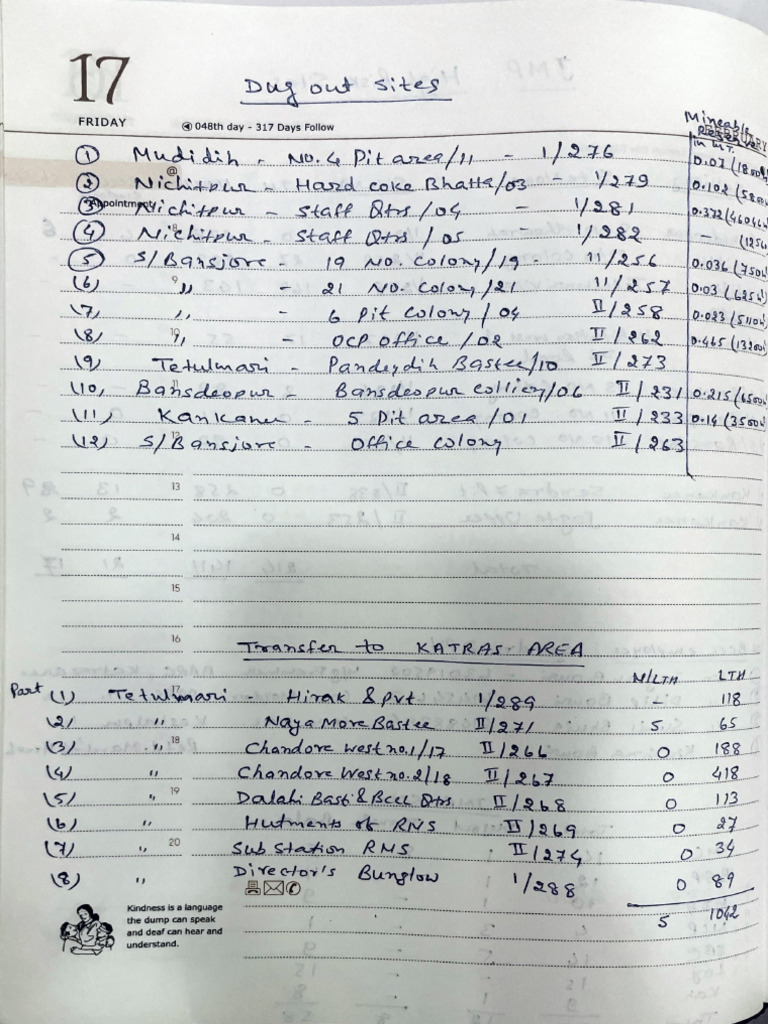 17
Dug out sites
FRIDAY 048th day - 317 Days Follow
Mineable Reserve
in M.T.
(1) Mudidih - No. 4 Pit area/11 - 1/276 0.07
(2) Nichitpur - Hard coke Bhatta/03 - 1/279 0.102
Appointment
(3) Nichitpur - Staff Qtrs/04 - 1/281 0.372
(4) Nichitpur - Staff Qtrs/05 - 1/282 -
(5) S/Bansjore - 19 No. Colony/19 - 11/256 0.036
(6) 9 " - 21 No. Colony/21 11/257 0.03
(7) " - 6 Pit Colony/04 II/258 0.023
(8) 10 " - OCP office/02 II/262 0.465
(9) Tetulmari - Pandeydih Bastee/10 II/273
(10) Bansdeopur - Bansdeopur colliery/06 II/231 0.215
(11) Kankanee - 5 Pit area/01 II/233 0.14
(12) S/Bansjore - Office colony II/263
13
14
15
16
Transfer to KATRAS AREA
N/LTH LTH
Part (1) Tetulmari - Hirak & pvt 1/289 - 118
(2) " Naya More Bastee II/271 5 65
(3) " 18 Chandore West no.1/17 II/266 0 188
(4) " Chandore West no.2/18 II/267 0 418
(5) " 19 Dalahi Basti & Bccl Qtrs II/268 0 113
(6) " Hutments of RNS II/269 0 27
(7) " 20 Sub Station RMS II/274 0 34
(8) " Director's Bunglow 1/288 0 89
5 1042
Kindness is a language
the dump can speak
and deaf can hear and
understand.